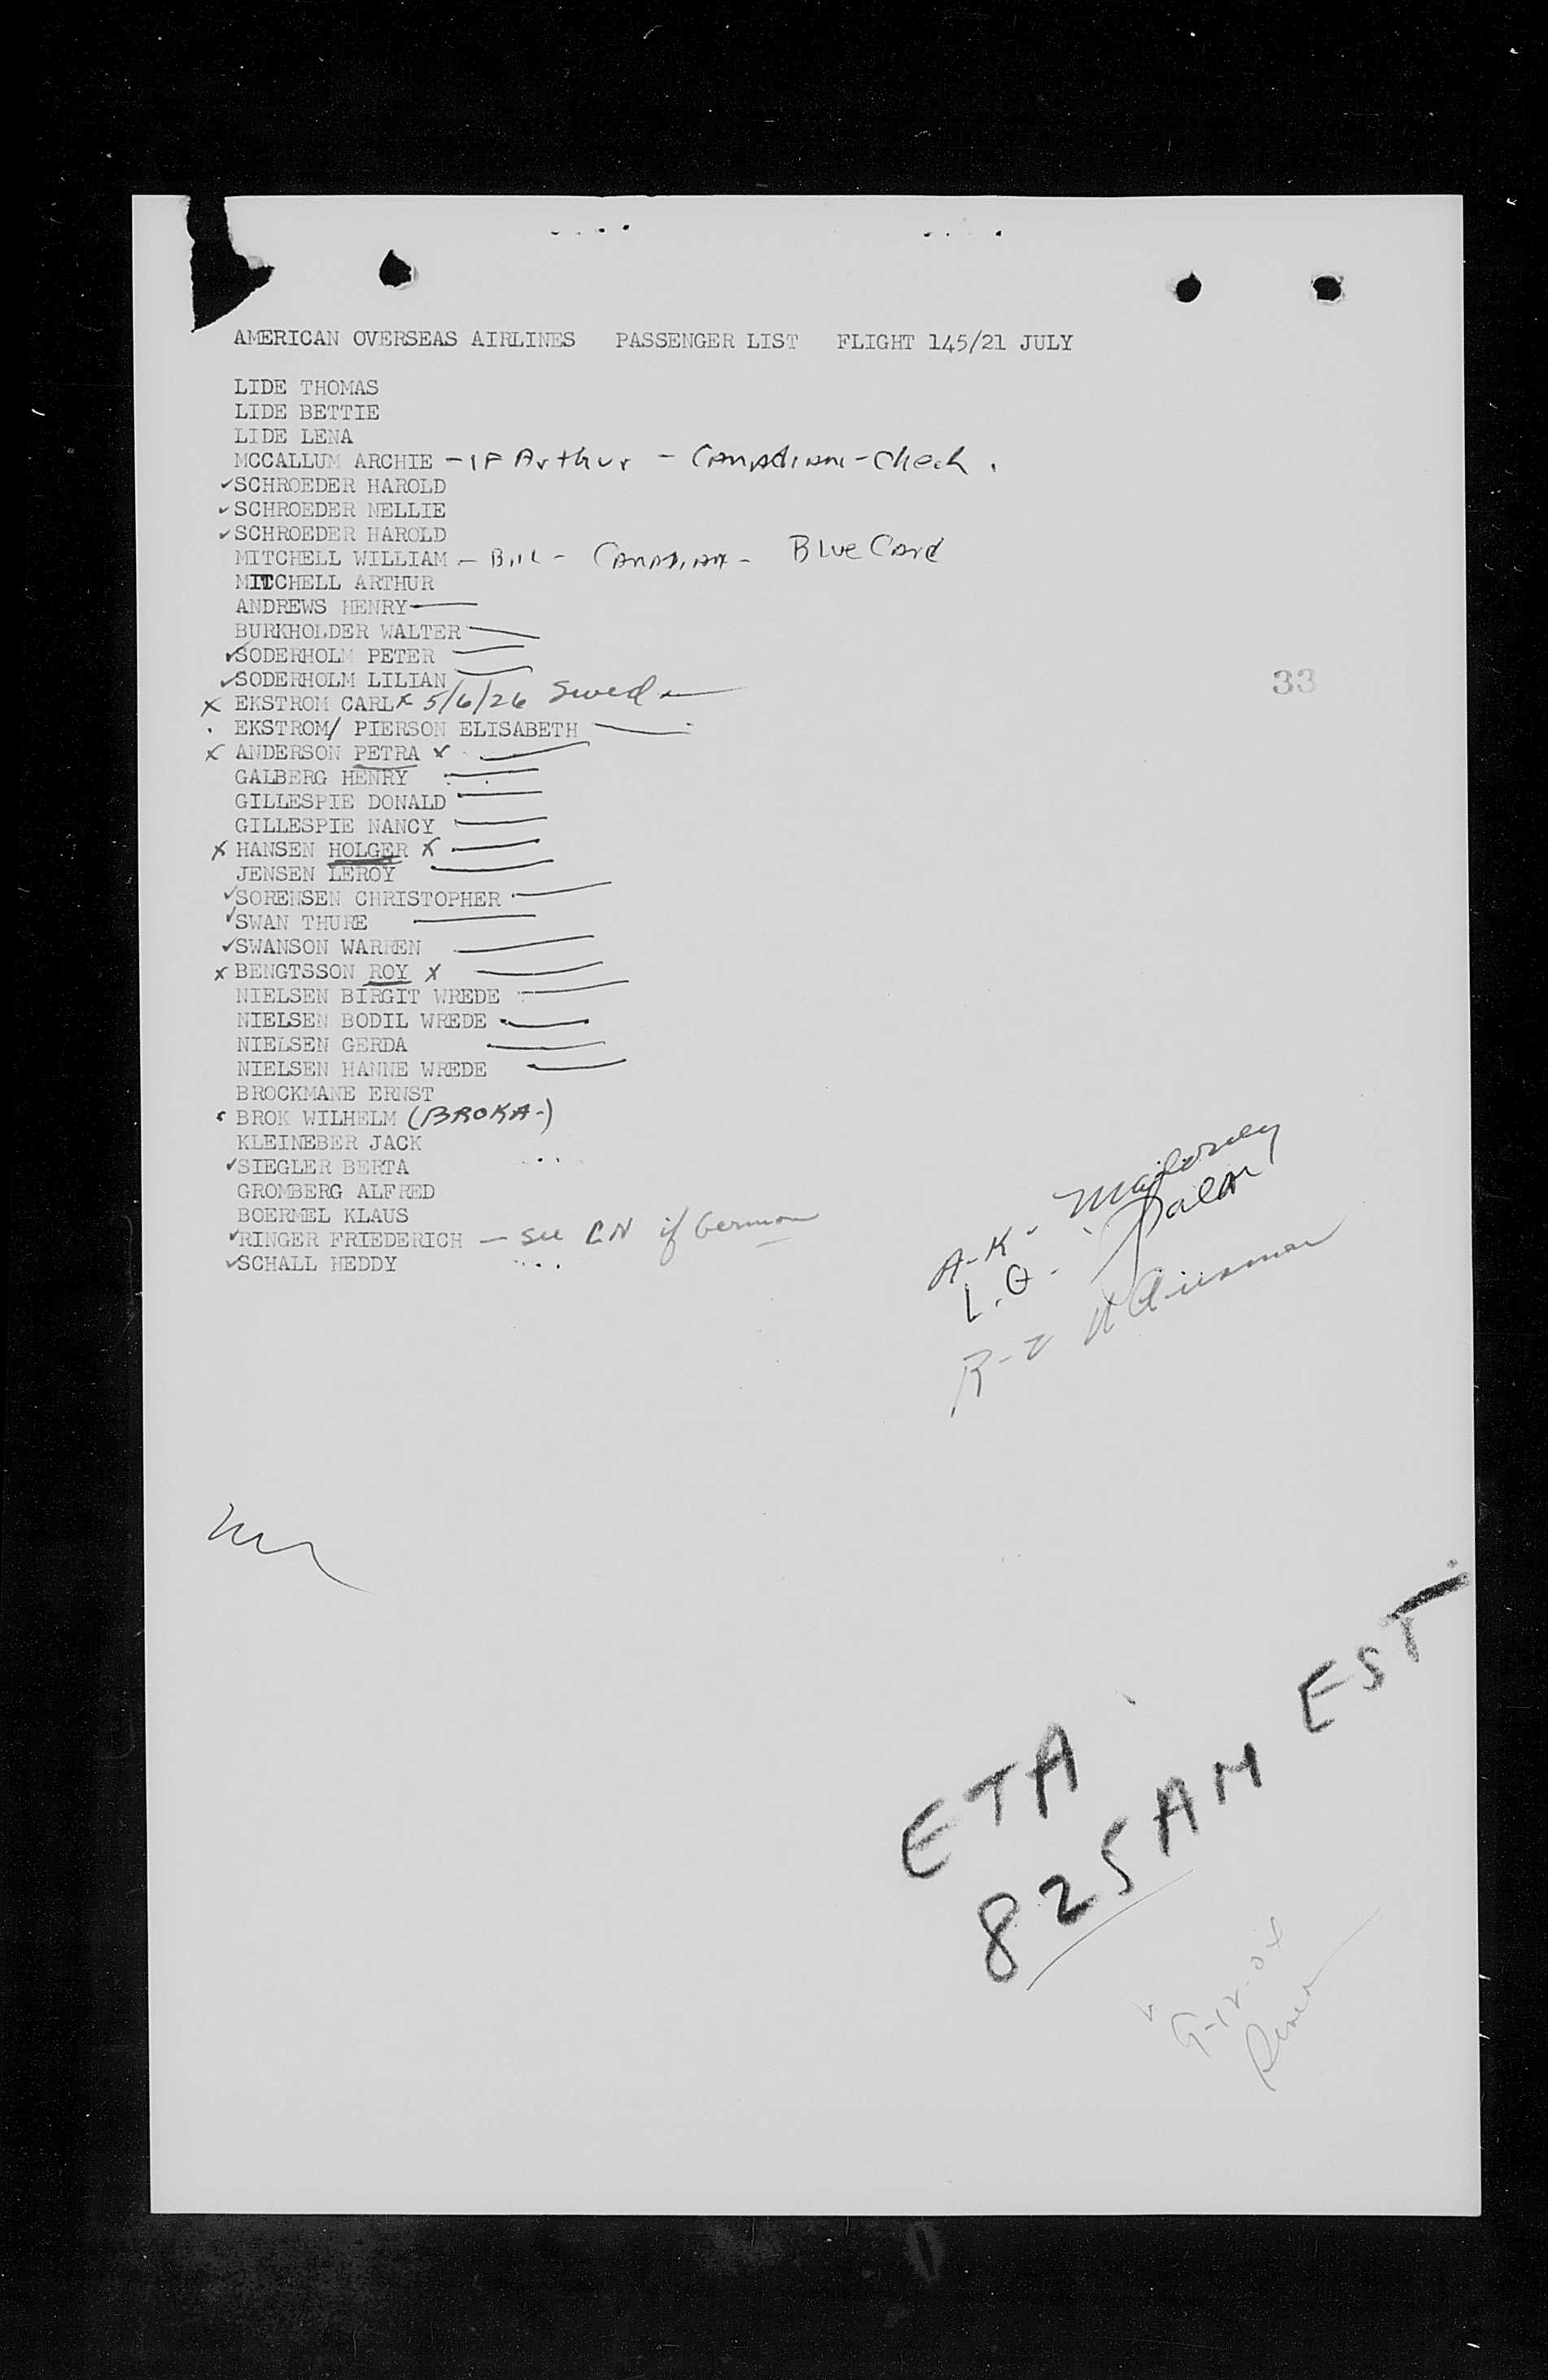 AMERICAN OVERSEAS AIRLINES PASSENGER LIST FLIGHT 145/21 JULY
LIDE THOMAS
LIDE BETTIE
LIDE LENA
MCCALLUM ARCHIE - IF Arthur - Canadian - Check.
✓SCHROEDER HAROLD
✓SCHROEDER NELLIE
✓SCHROEDER HAROLD
MITCHELL WILLIAM - Bill - Canadian - Blue Card
MITCHELL ARTHUR
ANDREWS HENRY —
BURKHOLDER WALTER —
✓SODERHOLM PETER —
✓SODERHOLM LILIAN —
X EKSTROM CARL X 5/6/26 Sweden
. EKSTROM/ PIERSON ELISABETH —
X ANDERSON PETRA X —
GALBERG HENRY —
GILLESPIE DONALD —
GILLESPIE NANCY —
X HANSEN HOLGER X —
JENSEN LEROY —
✓SORENSEN CHRISTOPHER —
✓SWAN THURE —
✓SWANSON WARREN —
X BENGTSSON ROY X —
NIELSEN BIRGIT WREDE —
NIELSEN BODIL WREDE —
NIELSEN GERDA —
NIELSEN HANNE WREDE —
BROCKMANE ERNST
BROK WILHELM (BROKA-)
KLEINEBER JACK
✓SIEGLER BERTA
GROMBERG ALFRED
BOERMEL KLAUS
✓RINGER FRIEDERICH — See LN if German
✓SCHALL HEDDY
33
A-K-
L.Q-
R-Z
ETA
825 AM EST